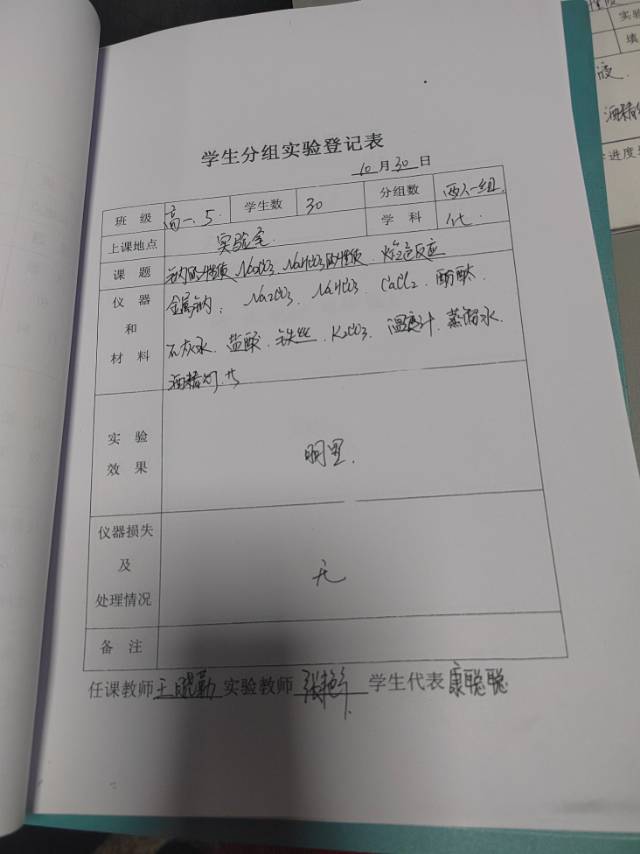 学生分组实验登记表
10月30日
班级 高一.5 学生数 30 分组数 两人一组
上课地点 实验室 学科 化
课题 钠的性质 Na2CO3、NaHCO3的性质 焰色反应
仪器和材料 金属钠: Na2CO3 NaHCO3 CaCl2 酚酞
石灰水 盐酸 铁丝 K2CO3 温度计 蒸馏水
酒精灯
实验效果 明显.
仪器损失及处理情况 无
备注
任课教师 王晓勤 实验教师 学生代表 康聪聪
实验
填
液
酒精
进度